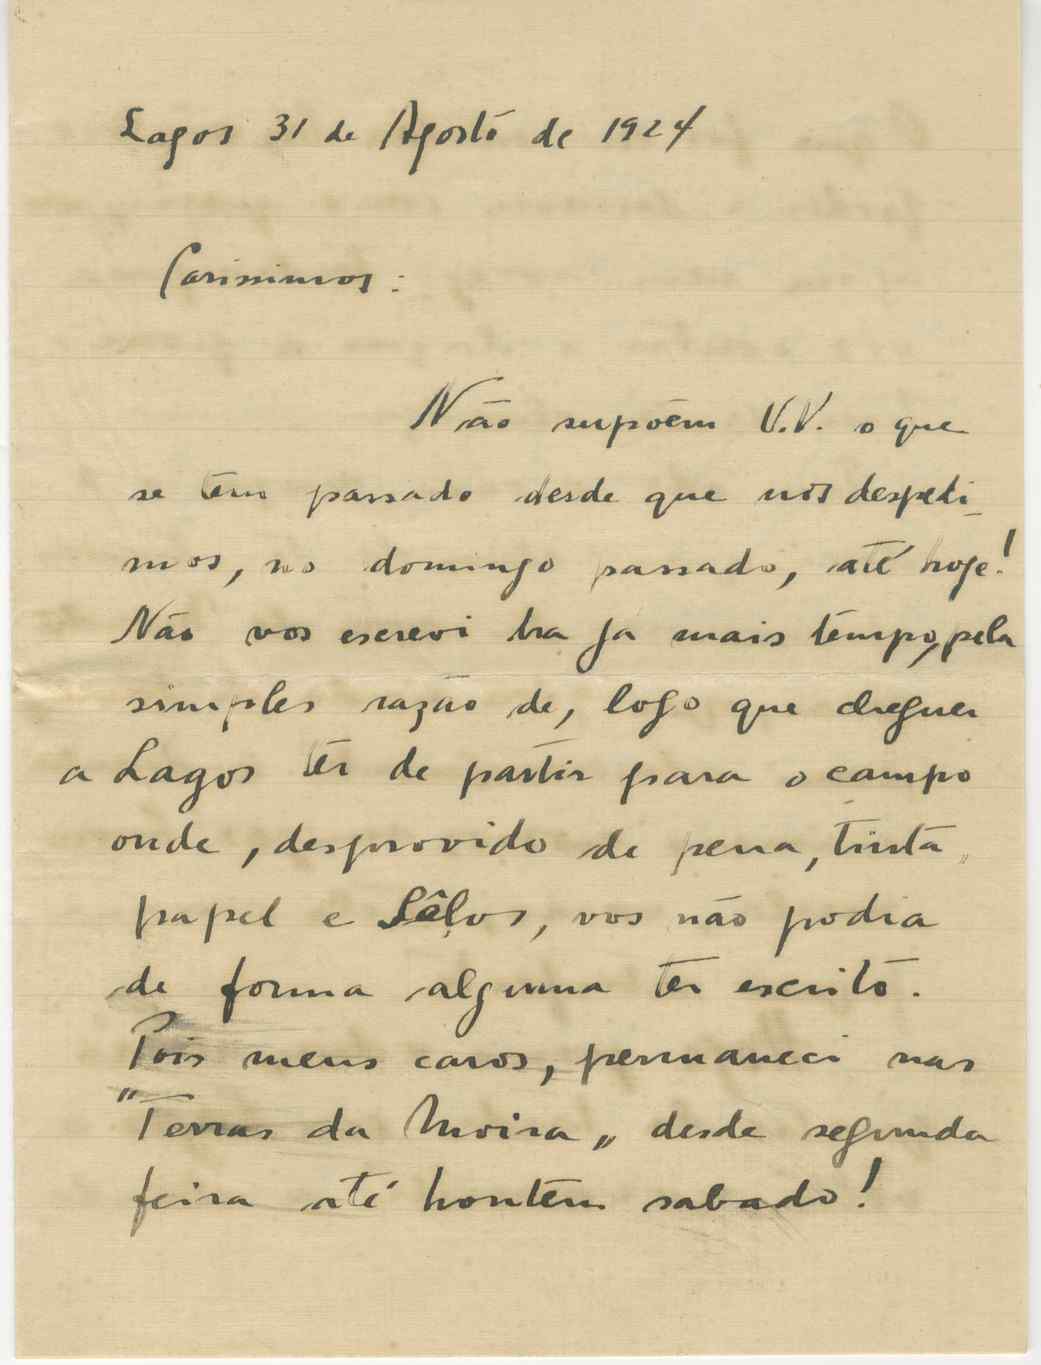 Lagos 31 de Agosto de 1924
Carissimos:
Não supõem V.V. o que
se tem passado desde que nos despedi-
mos, no domingo passado, até hoje!
Não vos escrevi ha já mais tempo, pela
simples razão de, logo que cheguei
a Lagos ter de partir para o campo
onde, desprovido de pena, tinta,
papel e Sêlos, vos não podia
de forma alguma ter escrito.
Pois meus caros, permaneci nas
"Terras da Moira" desde segunda
feira até hontem sabado!